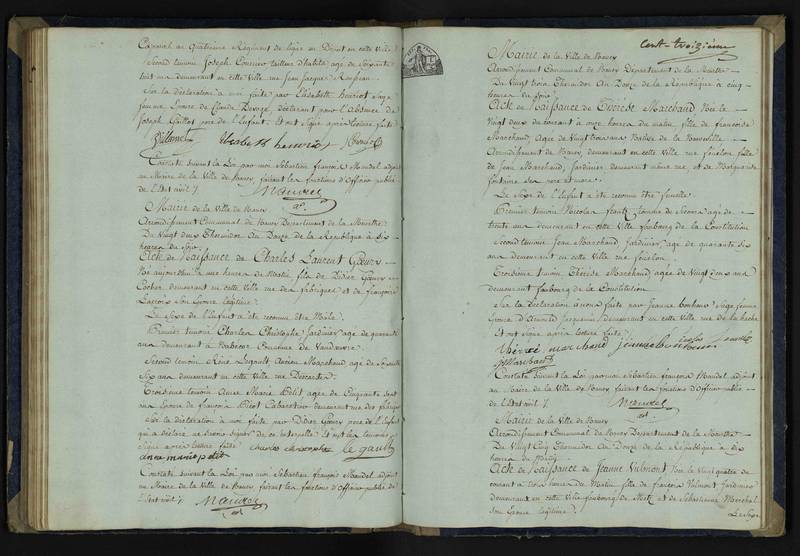 Caporal au Quatrième Régiment de ligne en Dépot en cette Ville
Second temoin Joseph tailleur d'habits, age de Soixante
huit ans demeurant en cette Ville rue Jean Jacques Rousseau.
Sur la déclaration a moi faite par Elisabeth henriot Sage
femme Epouse de Claude déclarant pour l'absence de
Joseph pere de l'Enfant. Et ont Signé après lecture faite
Elisabeth henriot
Constaté Suivant la Loi par moi Sébastien françois Mandel adjoint
au Maire de la Ville de Nancy faisant les fonctions d'Officier public
de l'Etat civil
Mandel
adt.
Mairie de la Ville de Nancy
Arrondissement Communal de Nancy Departement de la Meurthe
Du Vingt deux Thermidor An Douze de la République à Six
heures du Soir.
Acte de Naissance de Charles Laurent
Né aujourd'hui a une heure de Matin fils de Didier
Cocher demeurant en cette Ville rue des fabriques et de françoise
Lacroix Son Epouse légitime.
Le Sexe de l'Enfant a été reconnu être Masle.
Premier temoin Charles Christophe Jardinier agé de quarante
ans demeurant à Commune de Vandoeuvre
Second temoin René Legault Ancien Marchand agé de Soixante
Six ans demeurant en cette Ville rue Descartes.
Troisieme temoin Anne Marie Petit agée de Cinquante Sept
ans Epouse de françois Cabaretier demeurant rue des fabriques
Sur la déclaration à moi faite par Didier pere de l'Enfant
qui a déclaré ne Savoir Signer de ce interpellé Et ont les temoins
Signé après lecture faite charles christophe le gault
anne marie petit
Constaté Suivant la Loi par moi Sébastien françois Mandel adjoint
au Maire de la Ville de Nancy faisant les fonctions d'Officier public de
l'Etat civil
Mandel
adt.
Cent-troizième
Mairie de la Ville de Nancy
Arrondissement Communal de Nancy Département de la Meurthe
Du Vingt trois Thermidor An Douze de la République a cinq
heures du Soir.
Acte de Naissance de Thérèse Marchand Née le
Vingt deux du courant à onze heures du matin, fille de françoise
Marchand, Agée de Vingt trois ans Native de
Arrondissement de Nancy, demeurant en cette Ville rue fénélon fille
de Jean Marchand Jardinier demeurant même rue, et de Marguerite
fontaine Ses pere et mere.
Le Sexe de l'Enfant a été reconnu être femelle
Premier temoin Nicolas agé de
trente ans demeurant en cette Ville faubourg de la Constitution
Second temoin Jean Marchand Jardinier agé de quarante Six
ans demeurant en cette Ville rue fénélon
Troisième temoin Thérèse Marchand agée de Vingt Deux ans
demeurant faubourg de la Constitution.
Sur la Déclaration à moi faite par Jeanne Sage femme
Epouse d' demeurant en cette Ville rue de la hache
Et ont Signé après lecture faite
thérèse marchand
J Marchand
Constaté Suivant la Loi par moi Sébastien françois Mandel adjoint
au Maire de la Ville de Nancy faisant les fonctions d'Officier public
de l'Etat civil
Mandel
adt.
Mairie de la Ville de Nancy
Arrondissement Communal de Nancy Departement de la Meurthe
Du Vingt Cinq Thermidor An Douze de la République à dix
heures du Matin
Acte de Naissance de Jeanne Vulmont Née le Vingt quatre du
courant à trois heures du Matin fille de françois Vulmont Jardinier
demeurant en cette Ville faubourg de Metz et de Sébastienne Marchal
Son Epouse légitime.
Le Sexe